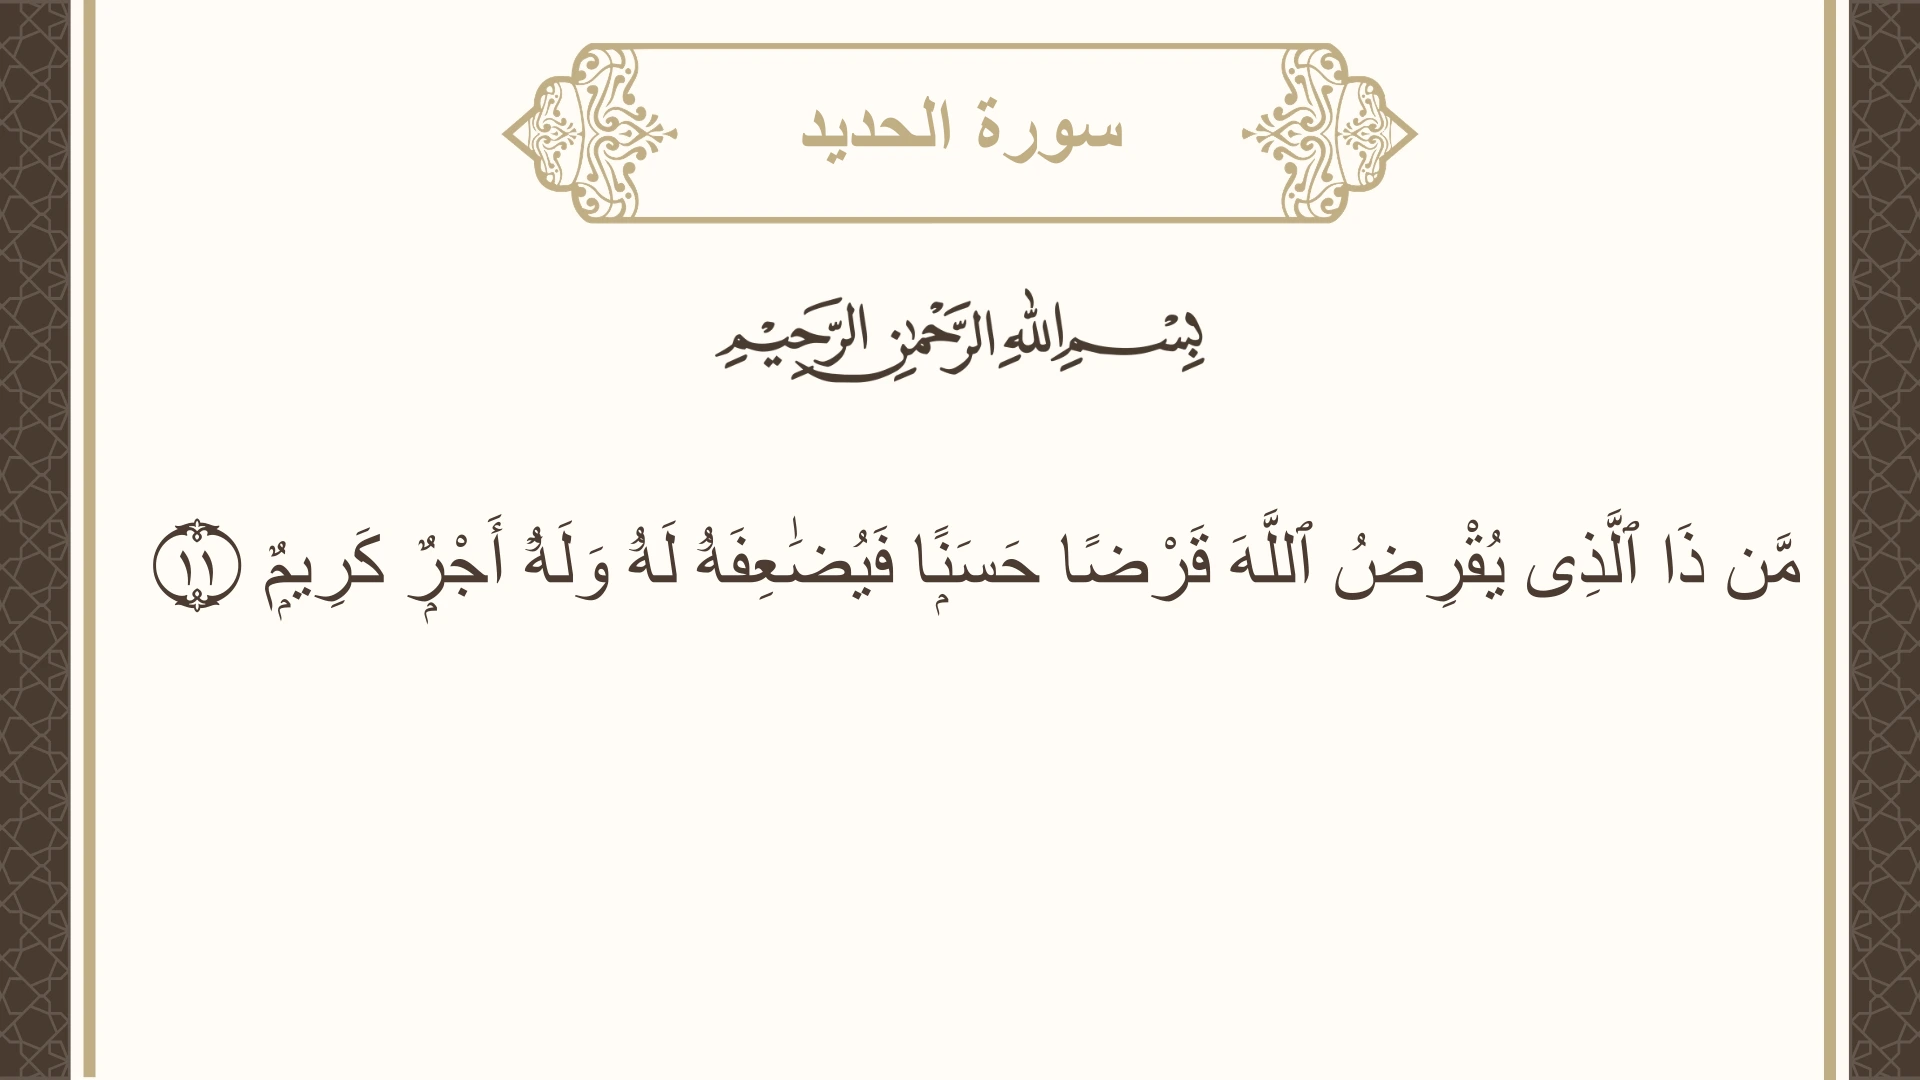 سورة الحديد
بِسْمِ اللهِ الرَّحْمٰنِ الرَّحِيْمِ
مَّن ذَا ٱلَّذِى يُقْرِضُ ٱللَّهَ قَرْضًا حَسَنًۭا فَيُضَـٰعِفَهُۥ لَهُۥ وَلَهُۥٓ أَجْرٌۭ كَرِيمٌۭ ١١